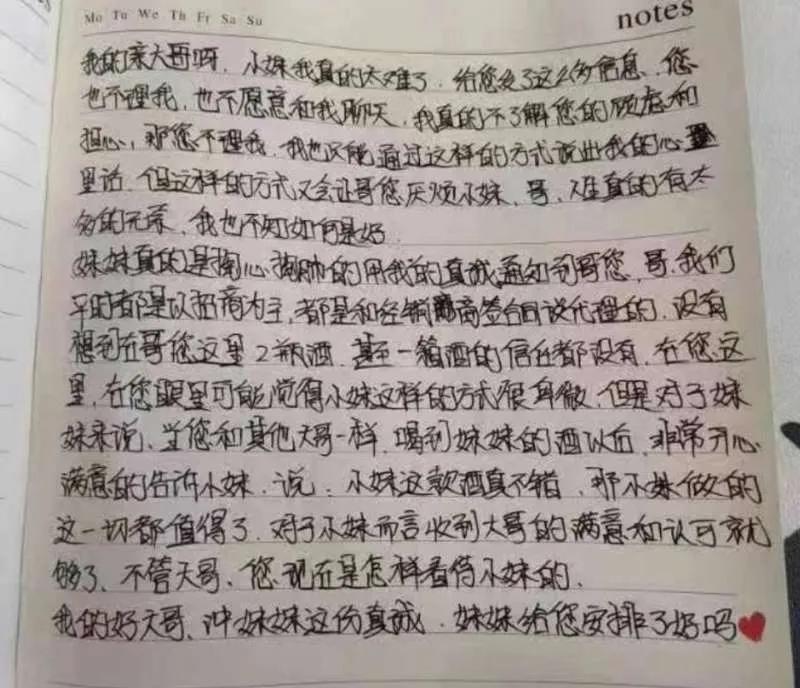 Mo Tu We Th Fr Sa Su
notes
我的亲大哥呀，小妹我真的太难了，给您发了这么多信息，您
也不理我，也不愿意和我聊天，我真的不了解您的顾虑和
担心，那您不理我，我也只能通过这样的方式说出我的心
里话，但这样的方式又会让哥您厌烦小妹，哥，人生真的有太
多的无奈，我也不知如何是好
妹妹真的是掏心掏肺的用我的真诚通知到哥您，哥，我们
平时都是以招商为主，都是和经销商签合同谈代理的，没有
想到在哥您这里2瓶酒，甚至一箱酒的信任都没有，在您这
里，在您眼里可能觉得小妹这样的方式很卑微，但是对于妹
妹来说，当您和其他大哥一样，喝到妹妹的酒以后，非常开心
满意的告诉小妹，说：小妹这款酒真不错，那小妹做的
这一切都值得了，对于小妹而言收到大哥的满意和认可就
够了，不管大哥，您现在是怎样看待小妹的，
我的好大哥，冲妹妹这份真诚，妹妹给您安排了好吗